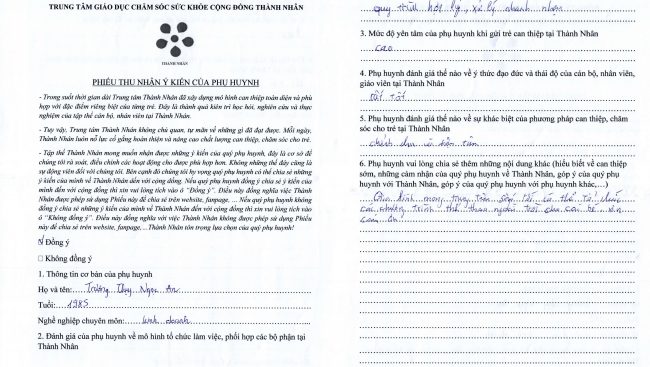 TRUNG TÂM GIÁO DỤC CHĂM SÓC SỨC KHỎE CỘNG ĐỒNG THÀNH NHÂN
THÀNH NHÂN
PHIẾU THU NHẬN Ý KIẾN CỦA PHỤ HUYNH
- Trong suốt thời gian dài Trung tâm Thành Nhân đã xây dựng mô hình can thiệp toàn diện và phù
hợp với đặc điểm riêng biệt của từng trẻ. Đây là thành quả kiên trì học hỏi, nghiên cứu và thực
nghiệm của tập thể cán bộ, nhân viên tại Thành Nhân.
- Tuy vậy, Trung tâm Thành Nhân không chủ quan, tự mãn về những gì đã đạt được. Mỗi ngày,
Thành Nhân luôn nỗ lực cố gắng hoàn thiện và nâng cao chất lượng can thiệp, chăm sóc cho trẻ.
- Tập thể Thành Nhân mong muốn nhận được những ý kiến của quý phụ huynh, đây là cơ sở để
chúng tôi rà soát, điều chỉnh các hoạt động cho được phù hợp hơn. Không những thế đây cũng là
sự động viên đối với chúng tôi. Bên cạnh đó chúng tôi hy vọng quý phụ huynh có thể chia sẻ những
ý kiến của mình về Thành Nhân đến với cộng đồng. Nếu quý phụ huynh đồng ý chia sẻ ý kiến của
mình đến với cộng đồng thì xin vui lòng tích vào ô "Đồng Ý". Điều này đồng nghĩa việc Thành Nhân
được phép sử dụng Phiếu này để chia sẻ trên website, fanpage, ... Nếu quý phụ huynh không
đồng ý chia sẻ những ý kiến của mình về Thành Nhân đến với cộng đồng thì xin vui lòng tích vào
ô "Không đồng ý". Điều này đồng nghĩa với việc Thành Nhân không được phép sử dụng Phiếu
này để chia sẻ trên website, fanpage...Thành Nhân tôn trọng lựa chọn của quý phụ huynh!
Đồng ý
Không đồng ý
1. Thông tin cơ bản của phụ huynh
Họ và tên: Trương Thụy Ngọc An
Tuổi: 1985
Nghề nghiệp chuyên môn: kinh doanh
2. Đánh giá của phụ huynh về mô hình tổ chức làm việc, phối hợp các bộ phận tại
Thành Nhân
hợp lý, xử lý nhanh nhẹn
3. Mức độ yên tâm của phụ huynh khi gửi trẻ can thiệp tại Thành Nhân
cao
4. Phụ huynh đánh giá thế nào về ý thức đạo đức và thái độ của cán bộ, nhân viên,
giáo viên tại Thành Nhân
rất tốt
5. Phụ huynh đánh giá thế nào về sự khác biệt của phương pháp can thiệp, chăm
sóc cho trẻ tại Thành Nhân
6. Phụ huynh vui lòng chia sẻ thêm những nội dung khác (hiểu biết về can thiệp
sớm, những cảm nhận của quý phụ huynh về Thành Nhân, góp ý của quý phụ
huynh với Thành Nhân, góp ý của quý phụ huynh với phụ huynh khác,…)
Gia đình mong trung tâm sớm có thể tổ chức
các chương trình thể thao ngoài trời cho các bé. Xin
cảm ơn